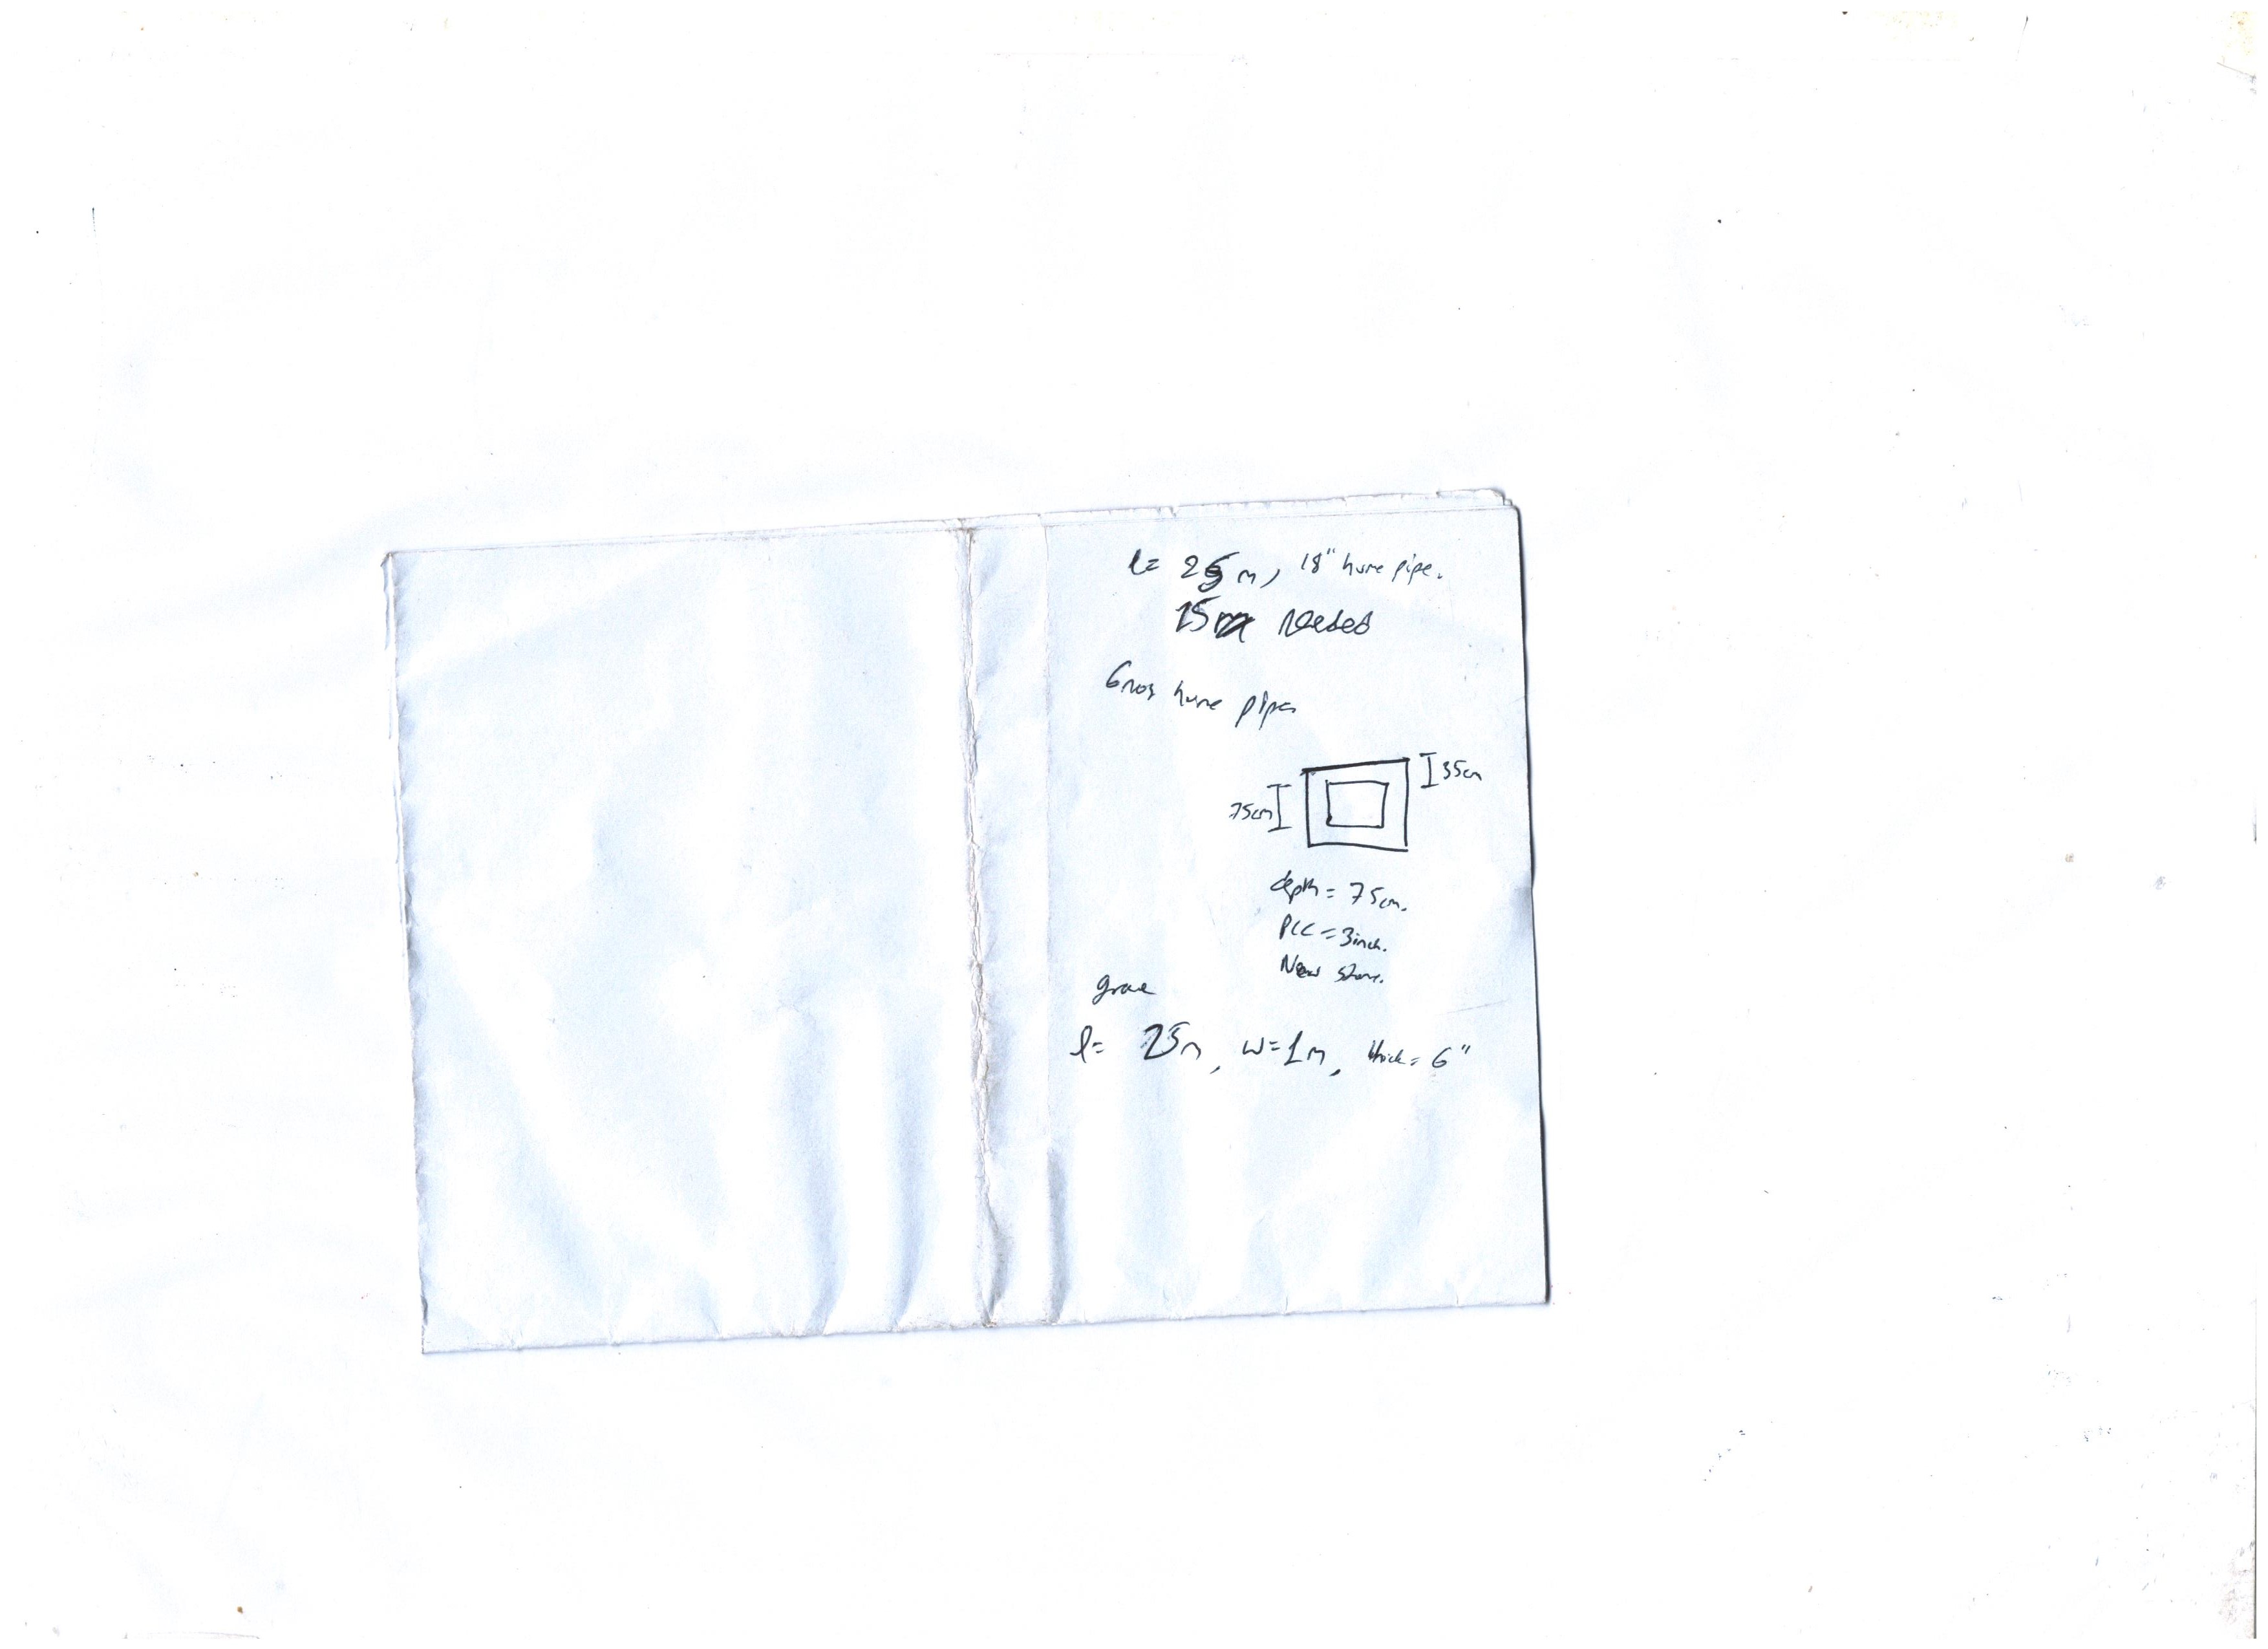 l= 25 m, 18" hume pipe.
15m needed
6nos hume pipes
35cm
75cm
depth = 75cm.
PCC = 3inch.
New stone.
l= 25m, w=1m, thick= 6"